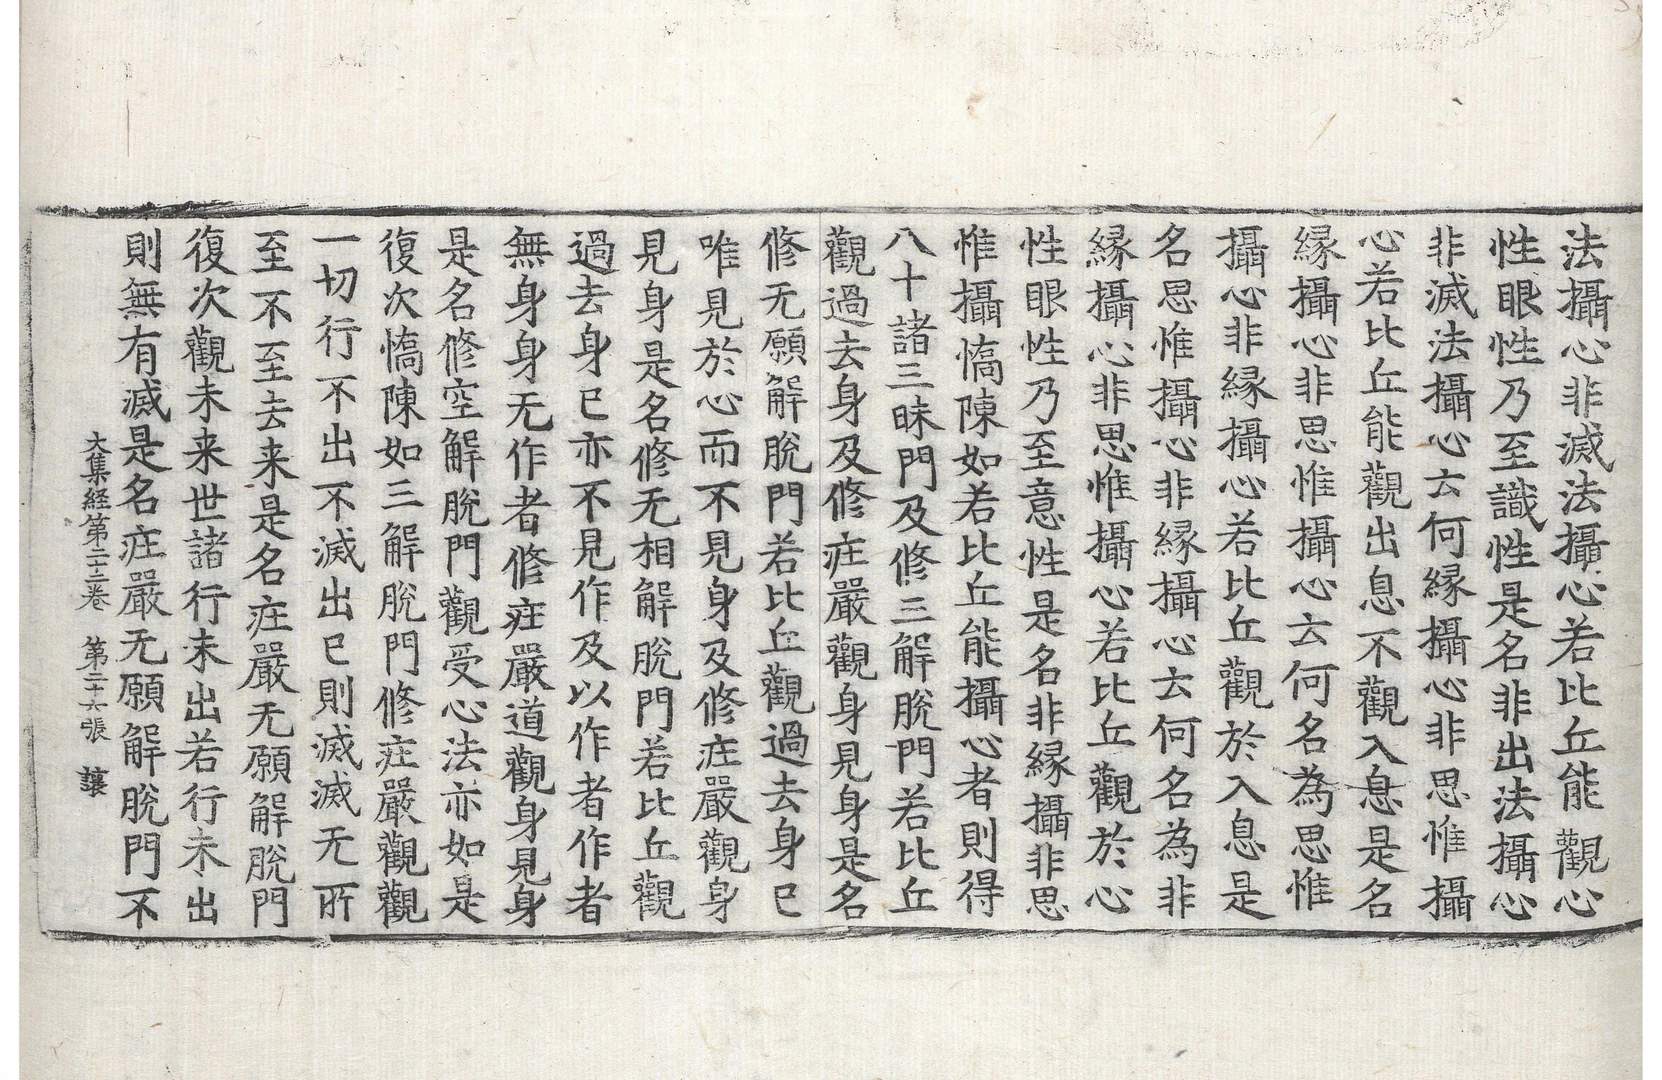 法攝心非滅法攝心若比丘能觀心
性眼性乃至識性是名非出法攝心
非滅法攝心云何縁攝心非思惟攝
心若比丘能觀出息不觀入息是名
縁攝心非思惟攝心云何名為思惟
攝心非縁攝心若比丘觀於入息是
名思惟攝心非縁攝心云何名為非
縁攝心非思惟攝心若比丘觀於心
性眼性乃至意性是名非縁攝非思
惟攝憍陳如若比丘能攝心者則得
八十諸三昧門及修三解脫門若比丘
觀過去身及修疘嚴觀身見身是名
修无願解脫門若比丘觀過去身已
唯見於心而不見身及修疘嚴觀身
見身是名修无相解脫門若比丘觀
過去身已亦不見作及以作者作者
無身身无作者修疘嚴道觀身見身
是名修空解脫門觀受心法亦如是
復次憍陳如三解脫門修疘嚴觀觀
一切行不出不滅出已則滅滅无所
至不至去来是名疘嚴无願解脫門
復次觀未来世諸行未出若行未出
則無有滅是名疘嚴无願解脫門不
大集経第二十二卷　第二十六張　讓